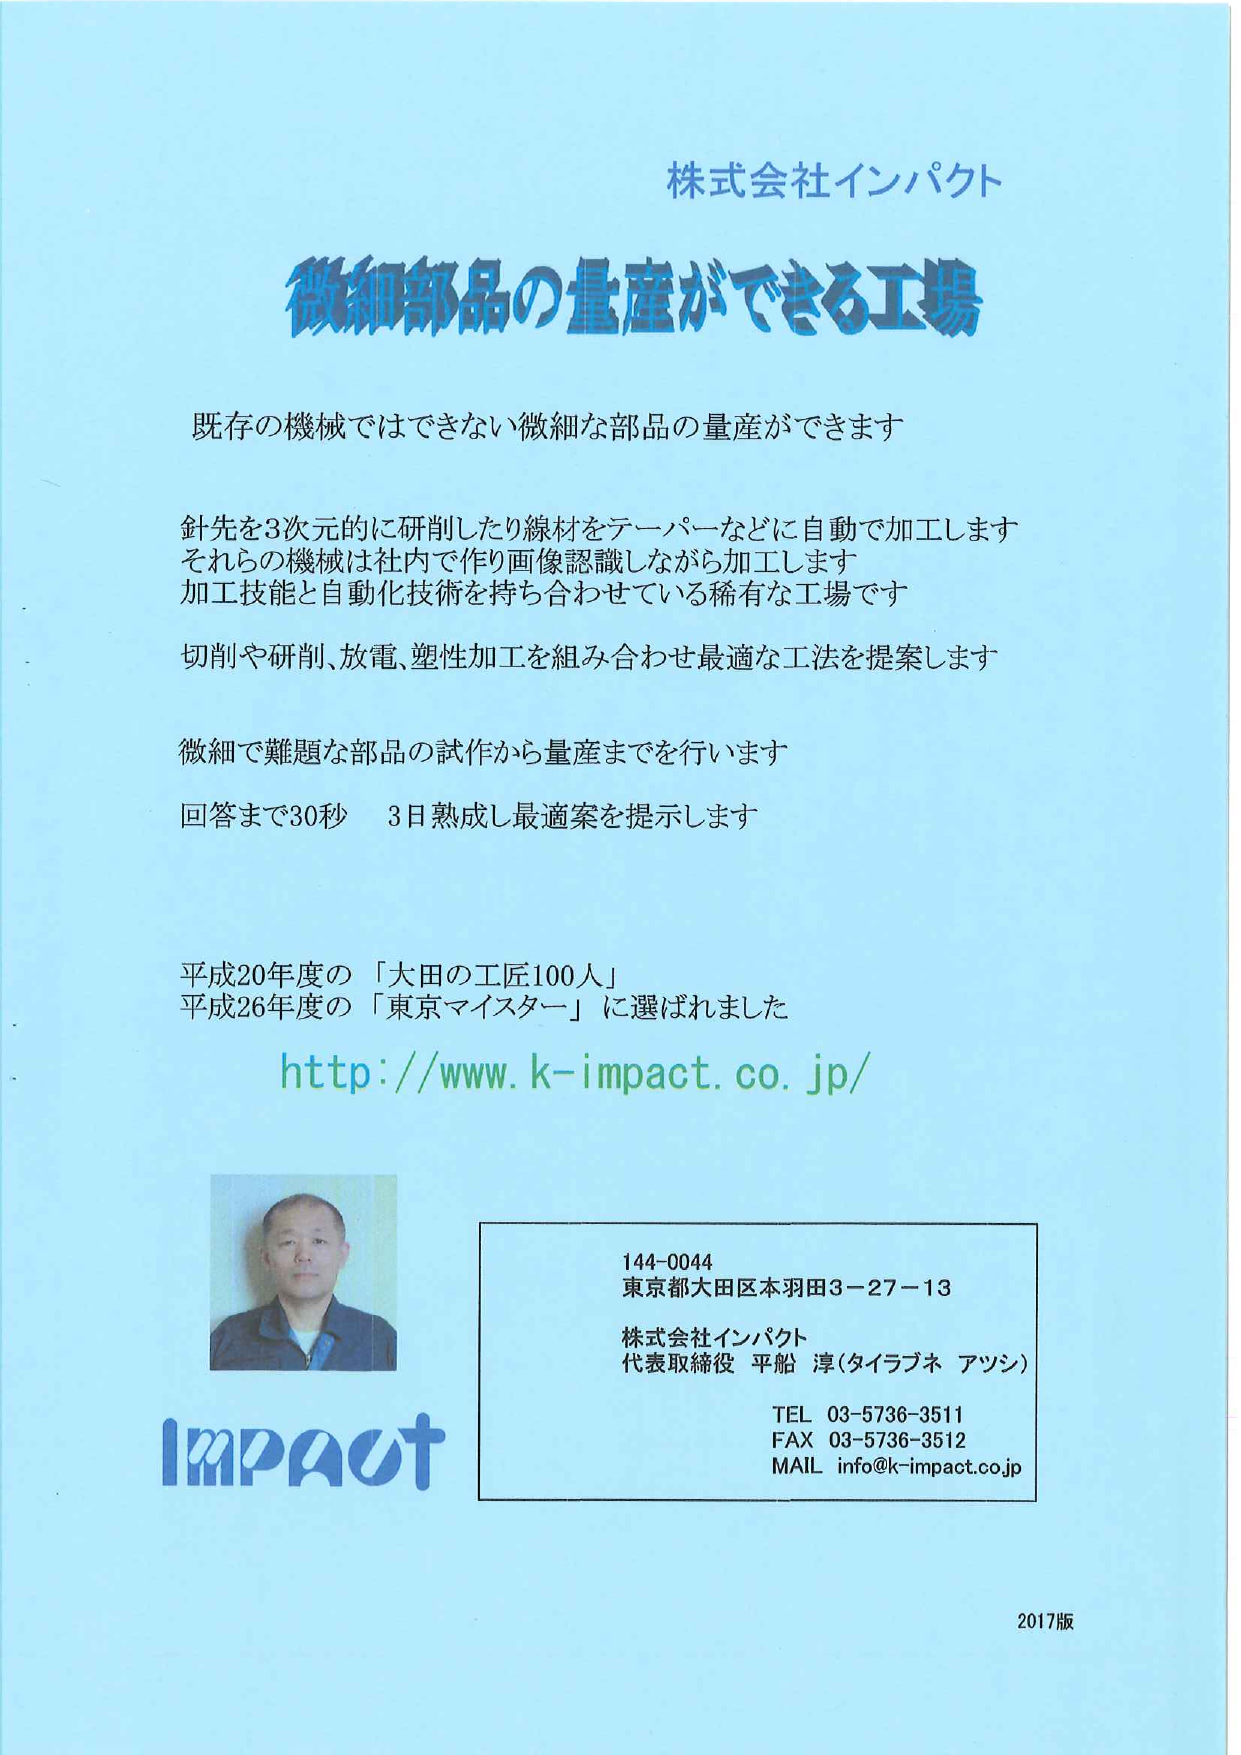 株式会社インパクト
微細部品の量産ができる工場
既存の機械ではできない微細な部品の量産ができます
針先を3次元的に研削したり線材をテーパーなどに自動で加工します
それらの機械は社内で作り画像認識しながら加工します
加工技能と自動化技術を持ち合わせている稀有な工場です
切削や研削、放電、塑性加工を組み合わせ最適な工法を提案します
微細で難題な部品の試作から量産までを行います
回答まで30秒　3日熟成し最適案を提示します
平成20年度の「大田の工匠100人」
平成26年度の「東京マイスター」に選ばれました
http://www.k-impact.co.jp/
144-0044
東京都大田区本羽田3－27－13
株式会社インパクト
代表取締役　平船　淳（タイラブネ　アツシ）
TEL 03-5736-3511
FAX 03-5736-3512
MAIL info@k-impact.co.jp
IMPACT
2017版